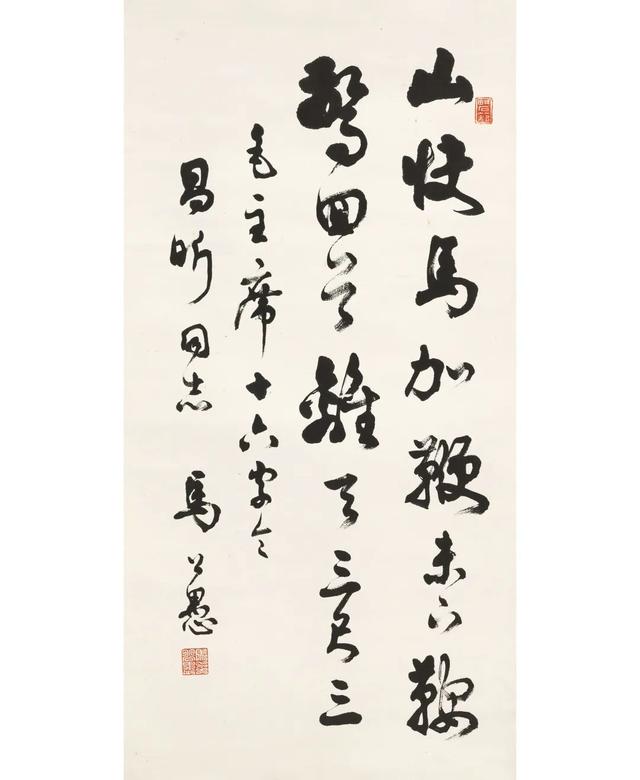 山快馬加鞭未下鞍
驚回首離天三尺三
毛主席十六字令
昌昕同志 馬公愚